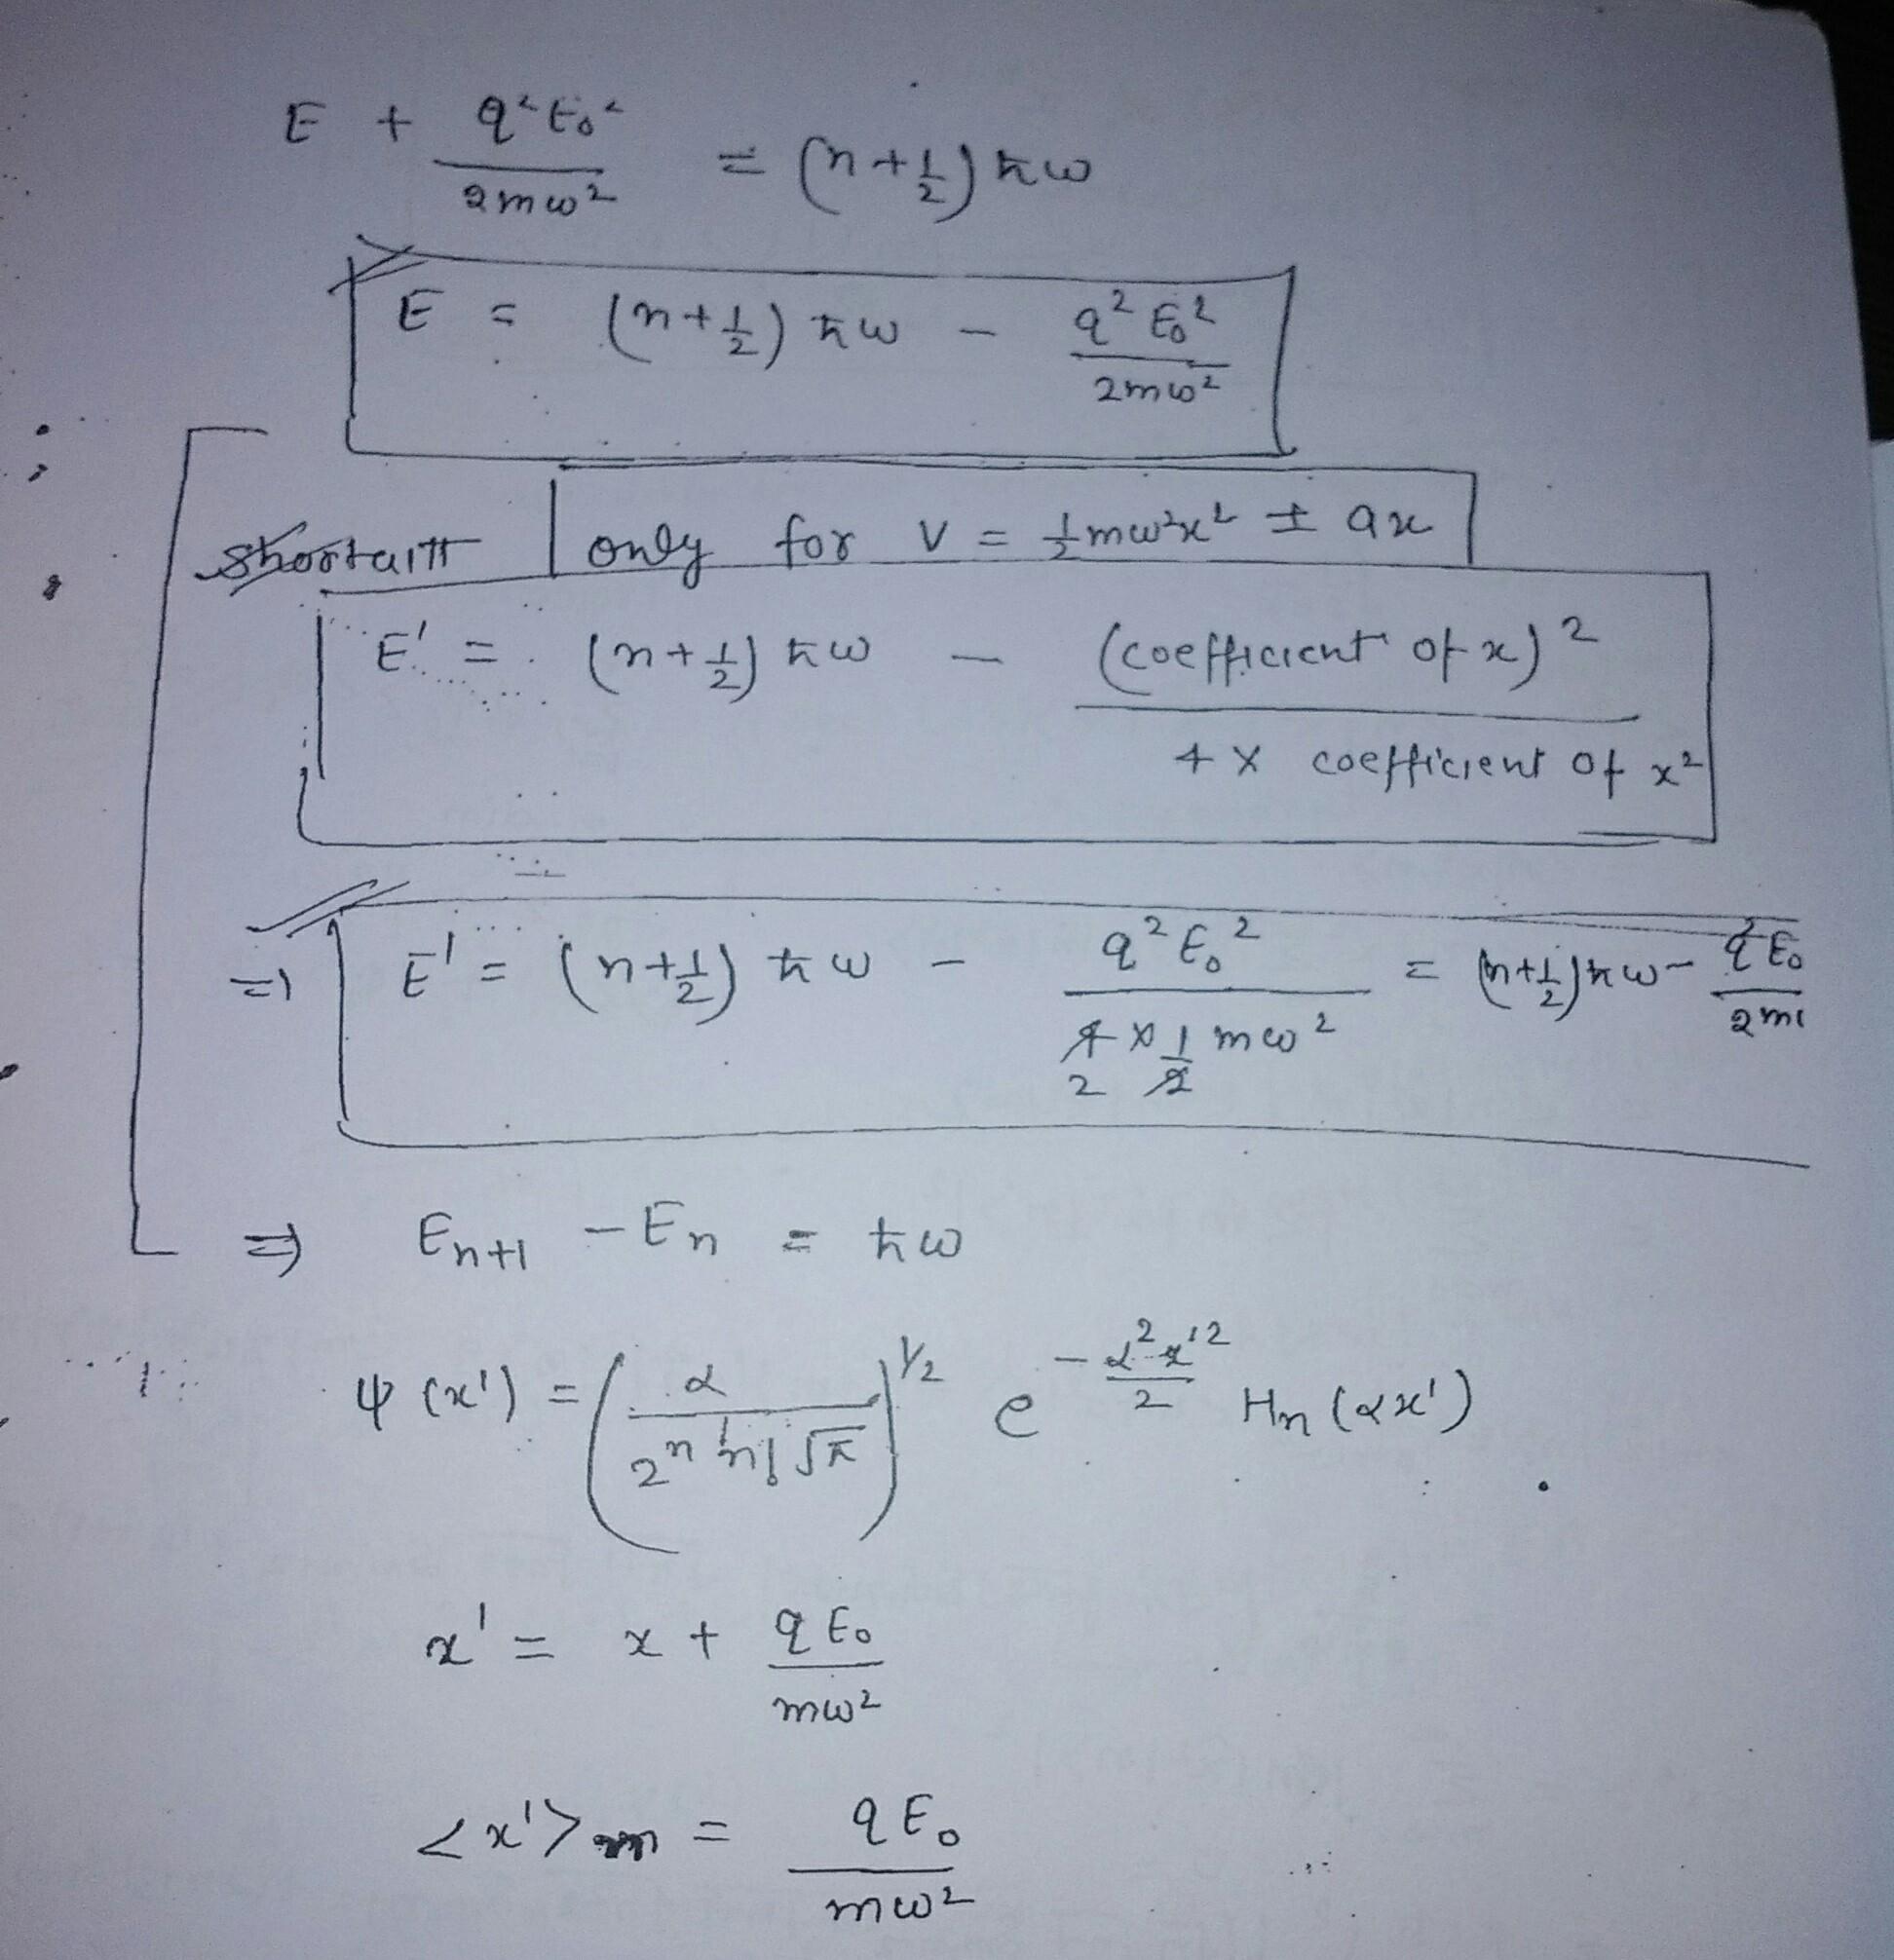 E + q²E₀² / 2mω² = (n+1/2) ħω
E = (n+1/2) ħω − q²E₀² / 2mω²
only for V = 1/2 mω²x² ± ax
E' = (n+1/2) ħω − (coefficient of x)² / 4 × coefficient of x²
⇒ E' = (n+1/2) ħω − q²E₀² / 4 × 1/2 mω² = (n+1/2) ħω − q²E₀ / 2m
2 
⇒ Eₙ₊₁ − Eₙ = ħω
ψ(x') = (α / 2ⁿ n! √π)^1/2 e^(−α²x'²/2) Hₙ(αx')
x' = x + qE₀ / mω²
<x'>ₙ = qE₀ / mω²